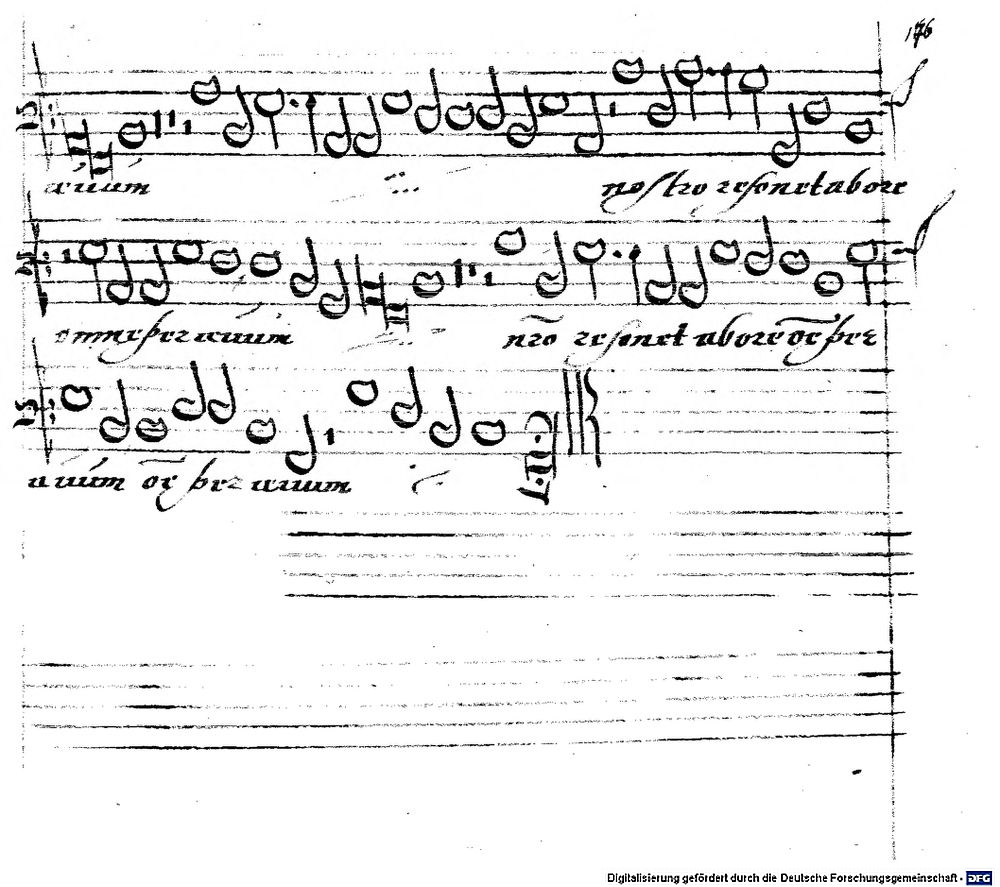 176
æuum nostro resonet ab ore
omne per æuum nr̄o resonet ab ore oē per
æuum oē per æuum
Digitalisierung gefördert durch die Deutsche Forschungsgemeinschaft - DFG